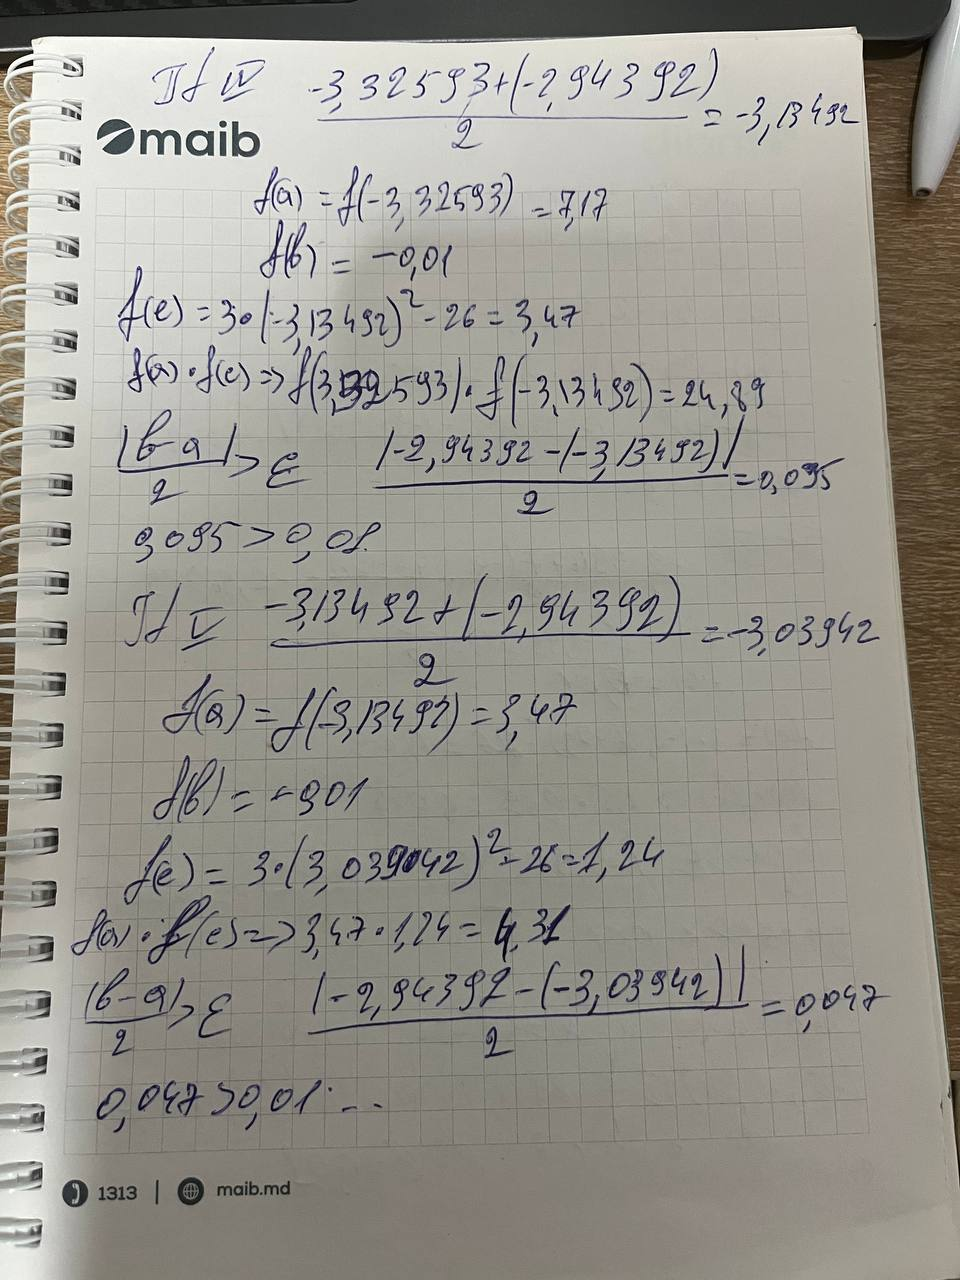 It IV -3,32593+(-2,94392) / 2 = -3,13492
maib
f(a) = f(-3,32593) = 7,17
f(b) = -0,01
f(c) = 3·(-3,13492)² - 26 = 3,47
f(a)·f(c) => f(3,32593)·f(-3,13492) = 24,89
|b-a| / 2 > ε |-2,94392-(-3,13492)| / 2 = 0,095
0,095 > 0,01.
It V -3,13492+(-2,94392) / 2 = -3,03942
f(a) = f(-3,13492) = 3,47
f(b) = -0,01
f(c) = 3·(3,039042)² - 26 = 1,24
f(a)·f(c) => 3,47·1,24 = 4,31
|b-a| / 2 > ε |-2,94392-(-3,03942)| / 2 = 0,047
0,047 > 0,01...
1313 | maib.md